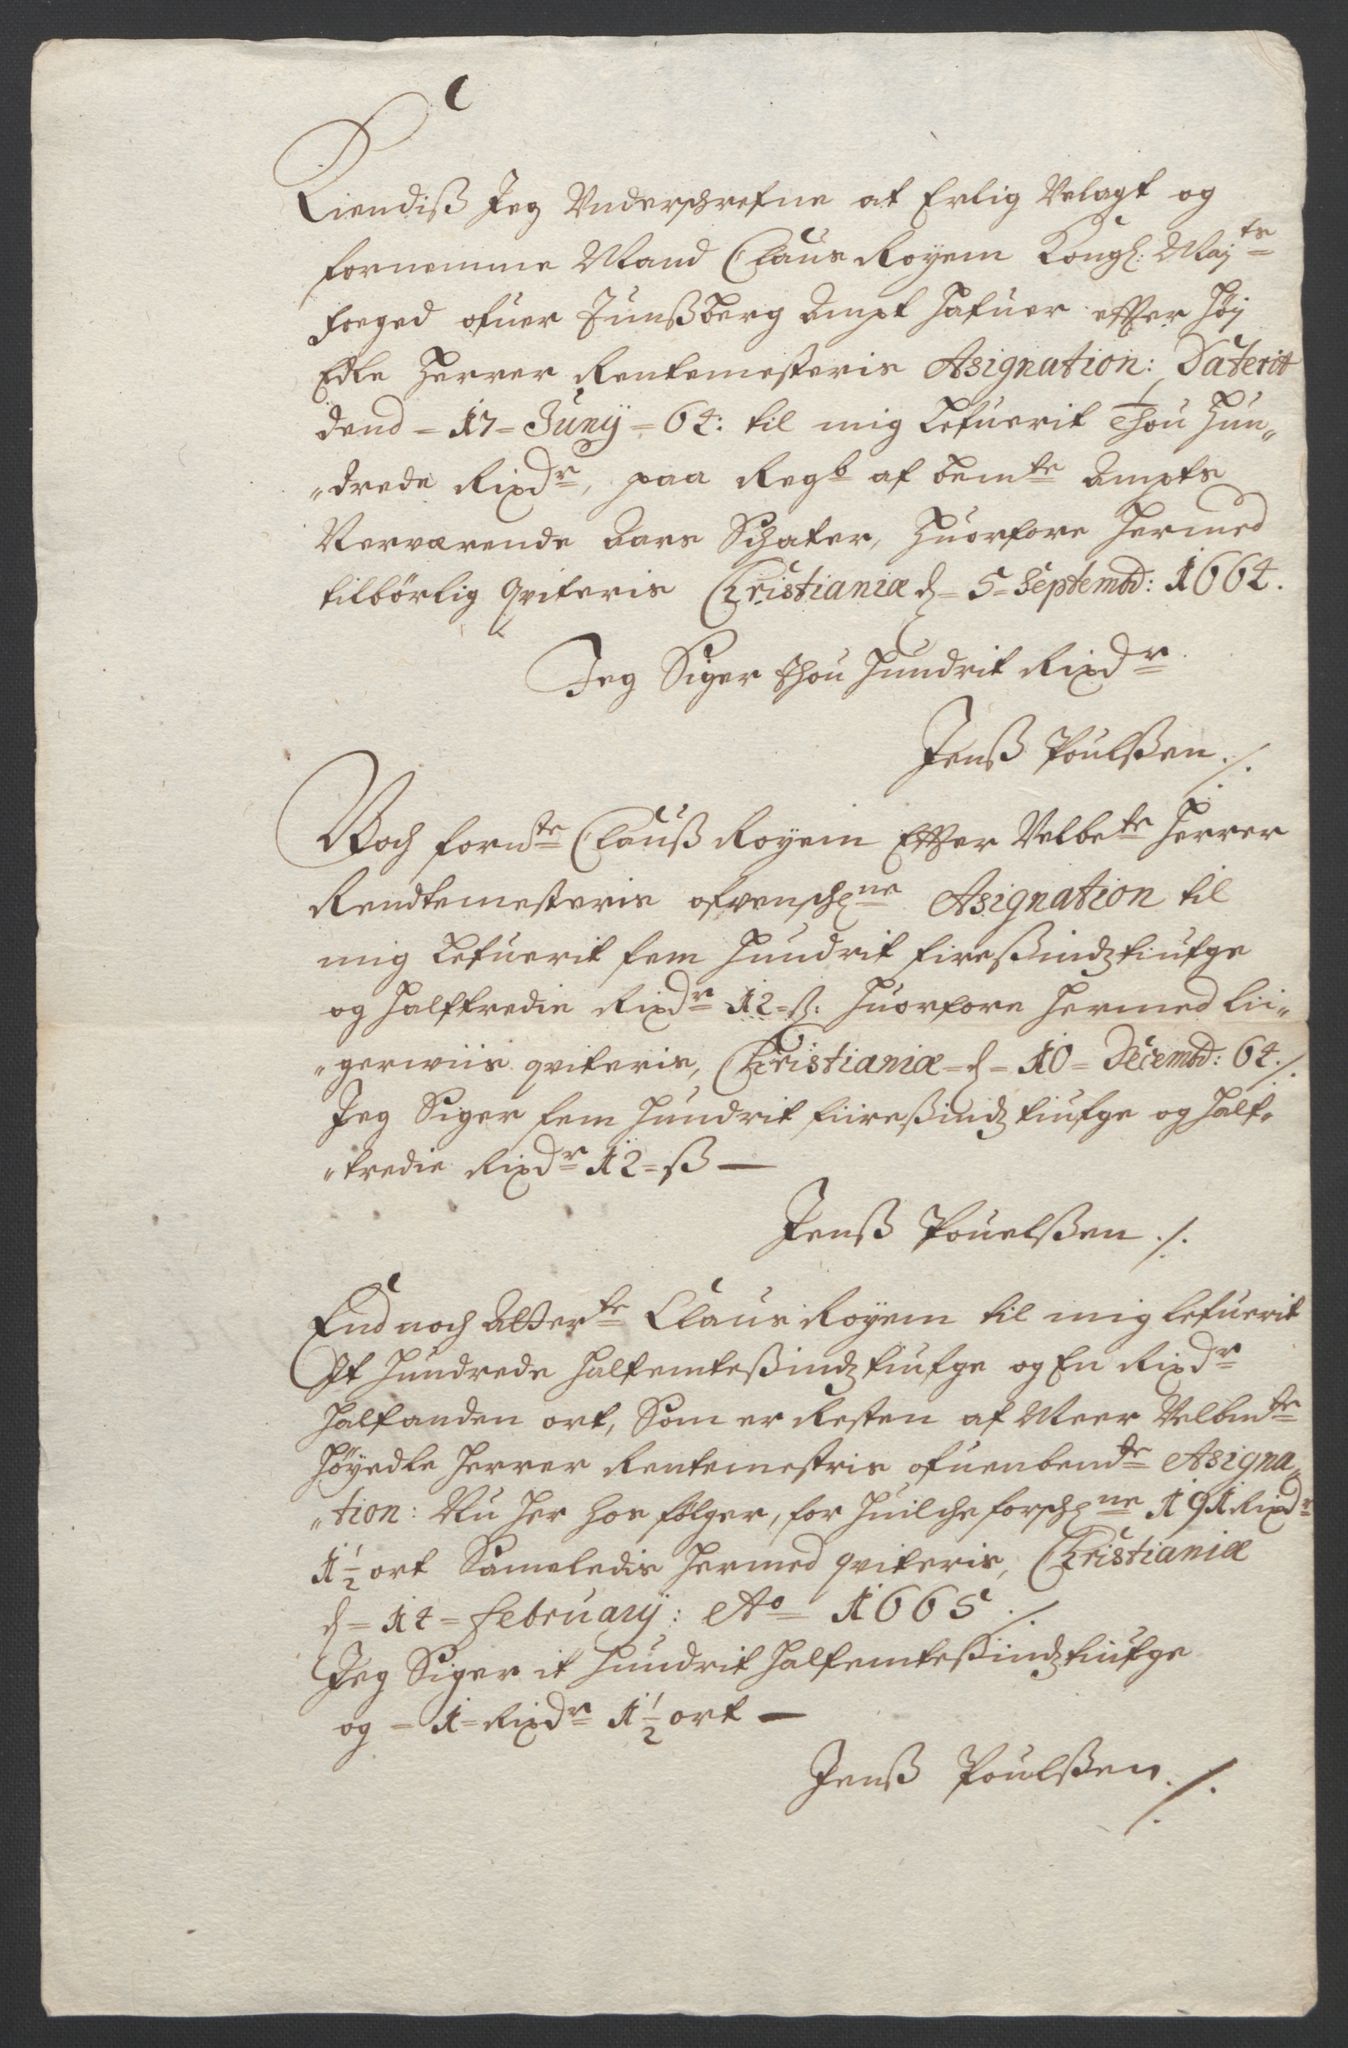 Kiendiß Jeg Underschrefne at Erlig Velagt og
fornemme Mand Claus Royem Kongl: Maj^ts
foeged ofuer Tunßberg Ampt hafuer effter Høj
Edle Herrer Rentemesteris Asignation: Daterit
dend = 17 = Junÿ = 64: til mig lefuerit Thou Hun„
„drede Rixd^r, paa Regb af bem^te Ampts
Nerværende Aars Schater, Huorfore hermed
tilbørlig qviteris Christianiæ d = 5 = Septembd: 1664.
Jeg Siger thou Hundrit Rixd^r
Jenß Poulßen ./.
Noch forn^te Clauß Royem Effter Velbe^te Herrer
Rendtemesteris ofvensch^ne Asignation til
mig lefuerit fem Hundrit firesindztiufge
og halftredie Rixd^r 12 ß. Huorfore hermed lii„
„gerwiis qviteris, Christianiæ = d = 10 = Decembd: 64 ./.
Jeg Siger fem Hundrit fiiresindztiufge og half„
„tredie Rixd^r 12 = ß —
Jenß Pouelßen ./.
End noch Atter^te Claus Royem til mig lefuerit
It Hundrede halfemteßindztiufge og En Rixd^r
halfanden ort, Som er Resten af Meer Velbm^te
Høyedle Herrer Rentemestris ofuenbem^te Asigna„
„tion: Nu her hos følger, for huilche forsch^ne 191 Rixd^r
1½ ort Sameledis hermed qviteris, Christianiæ
d = 14 = Februarÿ: Ao = 1665 ./.
Jeg Siger it Hundrit halfemteßindztiufge
og = 1 = Rixd^r 1½ ort —
Jenß Poulßen ./.